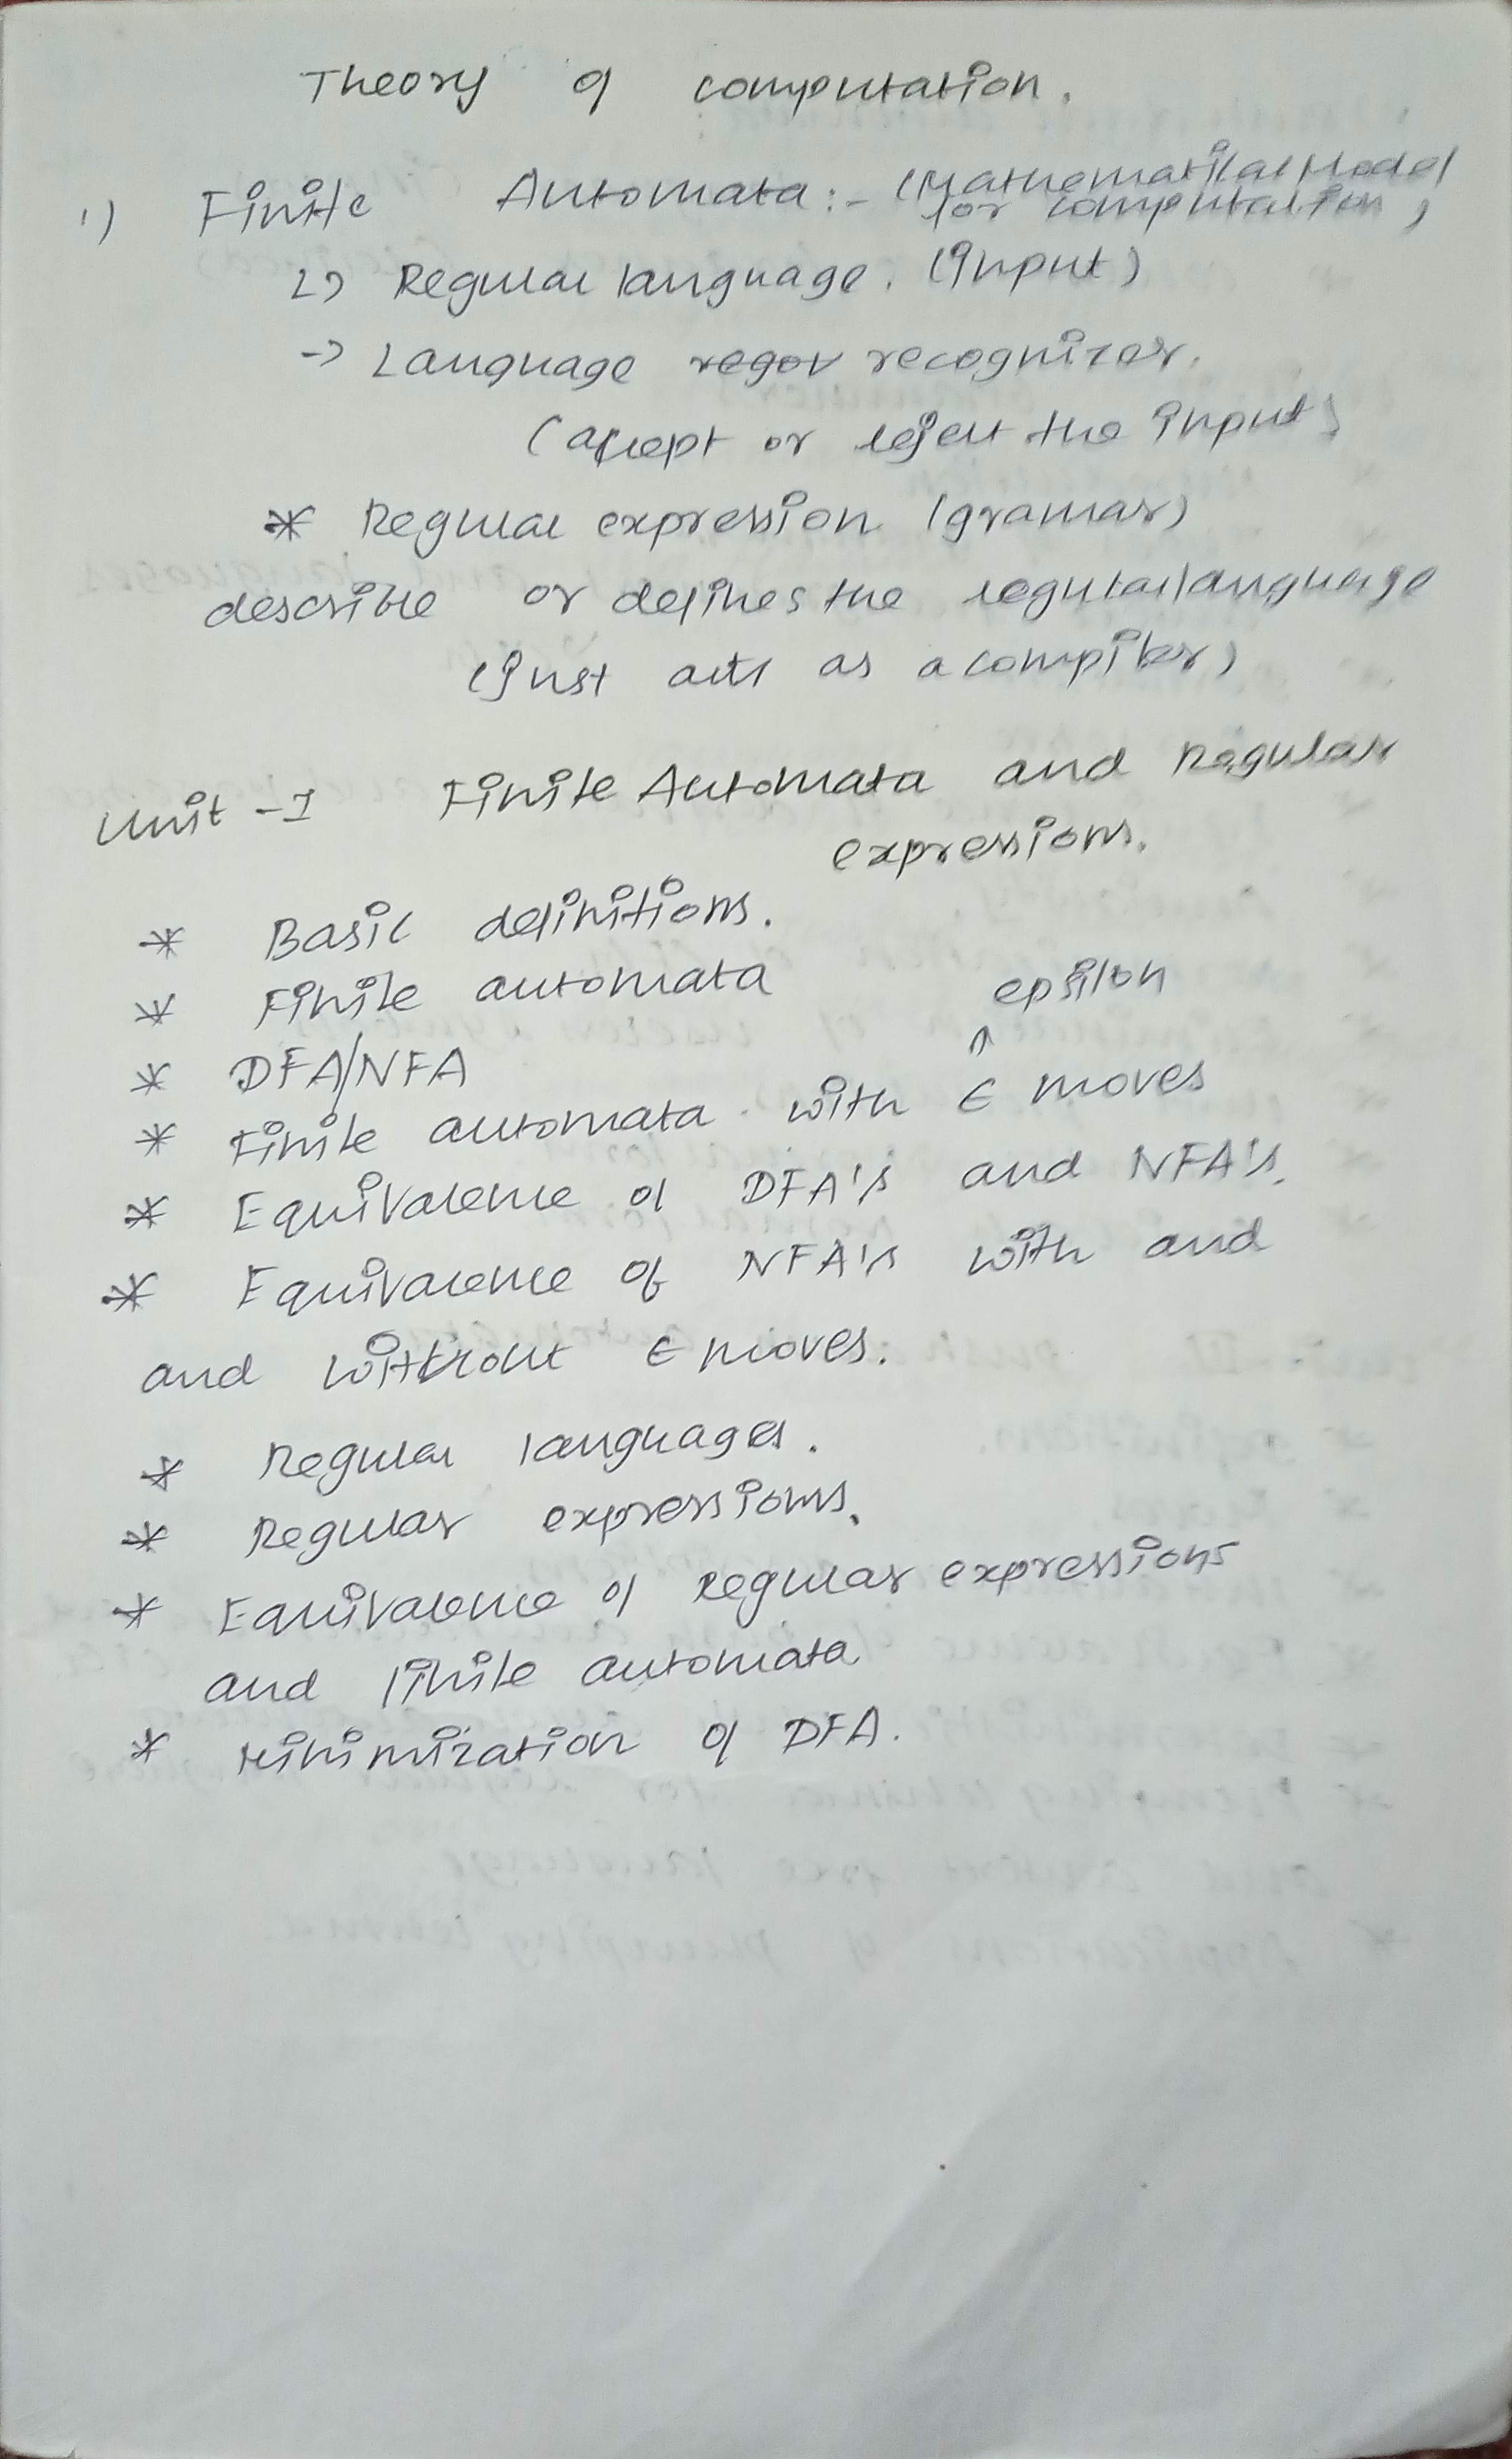 Theory of computation.
1) Finite Automata :- (Mathematical Model
for computation)
↳ Regular language. (Input)
-> Language regov recognizer.
(accept or reject the input)
* Regular expression (gramar)
describe or defines the regular language
(Just acts as a compiler)
Unit - I Finite Automata and Regular
expressions.
* Basic definitions.
* Finite automata
epsilon
↑
* DFA/NFA
* Finite automata with ϵ moves
* Equivalence of DFA's and NFA's.
* Equivalence of NFA's with and
and without ϵ moves.
* Regular languages.
* Regular expressions.
* Equivalence of Regular expressions
and finite automata
* Minimization of DFA.